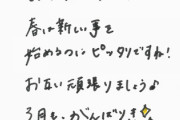 春は新しい事を
始めるのにピッタリですね！
お互い頑張りましょう♪
3月も、がんばります